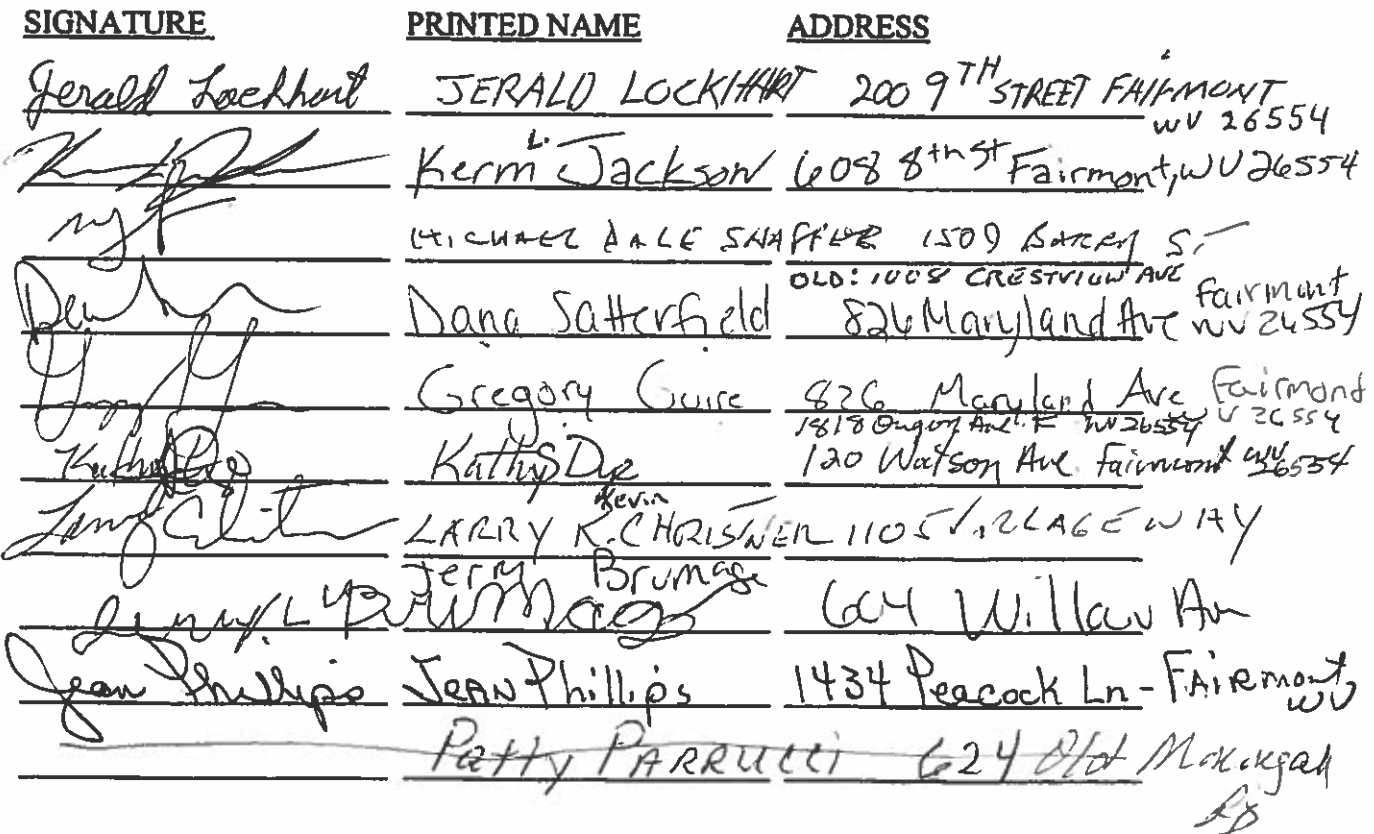 SIGNATURE PRINTED NAME ADDRESS
Jerald Lockhart JERALD LOCKHART 200 9TH STREET FAIRMONT
WV 26554
L.
Kerm Jackson 608 8th St Fairmont, WV 26554
MICHAEL DALE SHAFFER 1509 ST
OLD: 1008 CRESTVIEW AVE
Dana Satterfield 826 Maryland Ave Fairmont
WV 26554
Gregory Guire 826 Maryland Ave Fairmond
WV 26554
1818 Ave. WV 26554
Kathy Kathy Dye 120 Watson Ave Fairmont WV
26554
Kevin
LARRY K. CHRISNER 1105 VILLAGE WAY
Jerry Brumage
Jerry L Brumage 604 Willow Av
Jean Phillips Jean Phillips 1434 Peacock Ln - Fairmont
WV
Patty PARRUCCI 624 Old Monongah
Rd